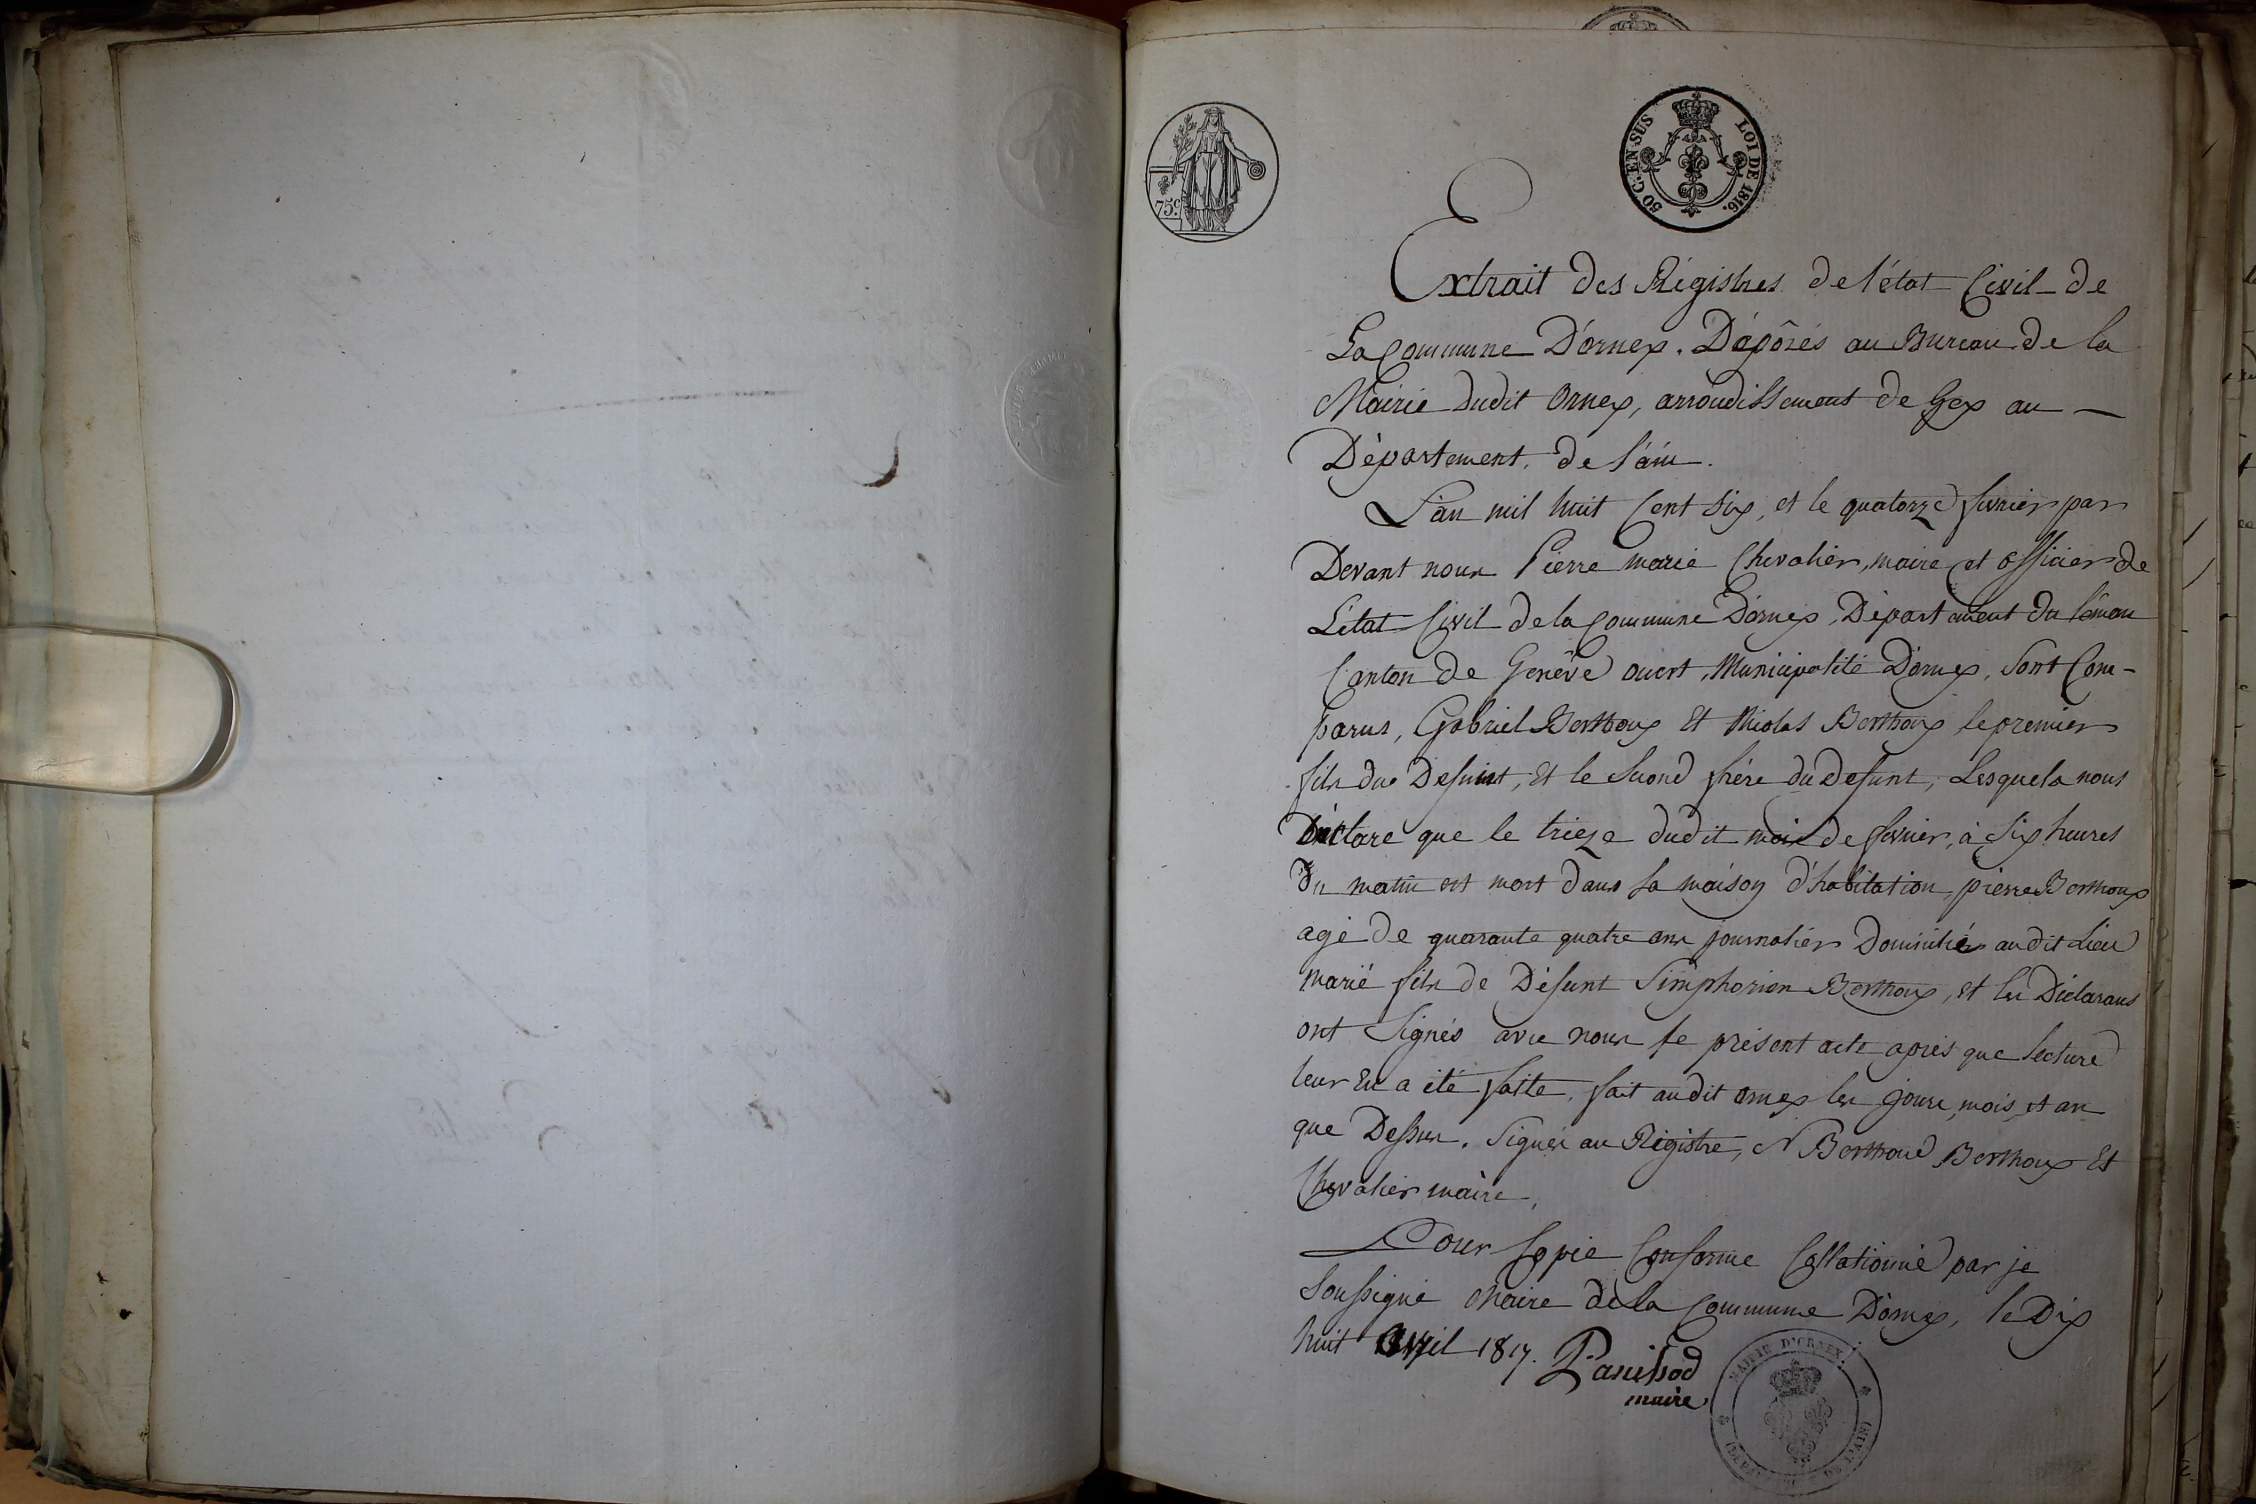 75.c
50 C. EN SUS
LOI DE 1816.
Extrait des Régistres de l'état Civil de
La Commune D'ornex. Dépôsés au Bureau de la
Mairie dudit Ornex, arrondissement de Gex au
Département de l'ain.
L'an mil huit Cent six, et le quatorze fevrier par
Devant nous Pierre marie Chevalier, maire et officier de
L'état Civil de la Commune D'ornex, Département du léman
Canton de Genêve ouest, Municipalité D'ornex, sont Com-
parus, Gabriel Berthoux Et Nicolas Berthoux le premier
fils du Defunt, Et le second frère du Defunt, Lesquels nous
Déclare que le trieze dudit mois de fevrier, à six heures
du matin est mort dans sa maison d'habitation, pierre Berthoux
agé de quarante quatre ans journalier Domicilié audit Lieu
marié fils de Défunt Simphorien Berthoux, et les Déclarans
ont signés avec nous le présent acte après que lecture
leur En a été faite. fait audit ornex les jours, mois, et an
que Dessus. Signés au Régistre, N Berthoud Berthoux Et
Chevalier maire.
Pour Copie Conforme Collationné par je
Soussigné Maire de la Commune D'ornex, le Dix
huit Avril 1817. Panissod
maire
MAIRIE D'ORNEX.
DE L'AIN